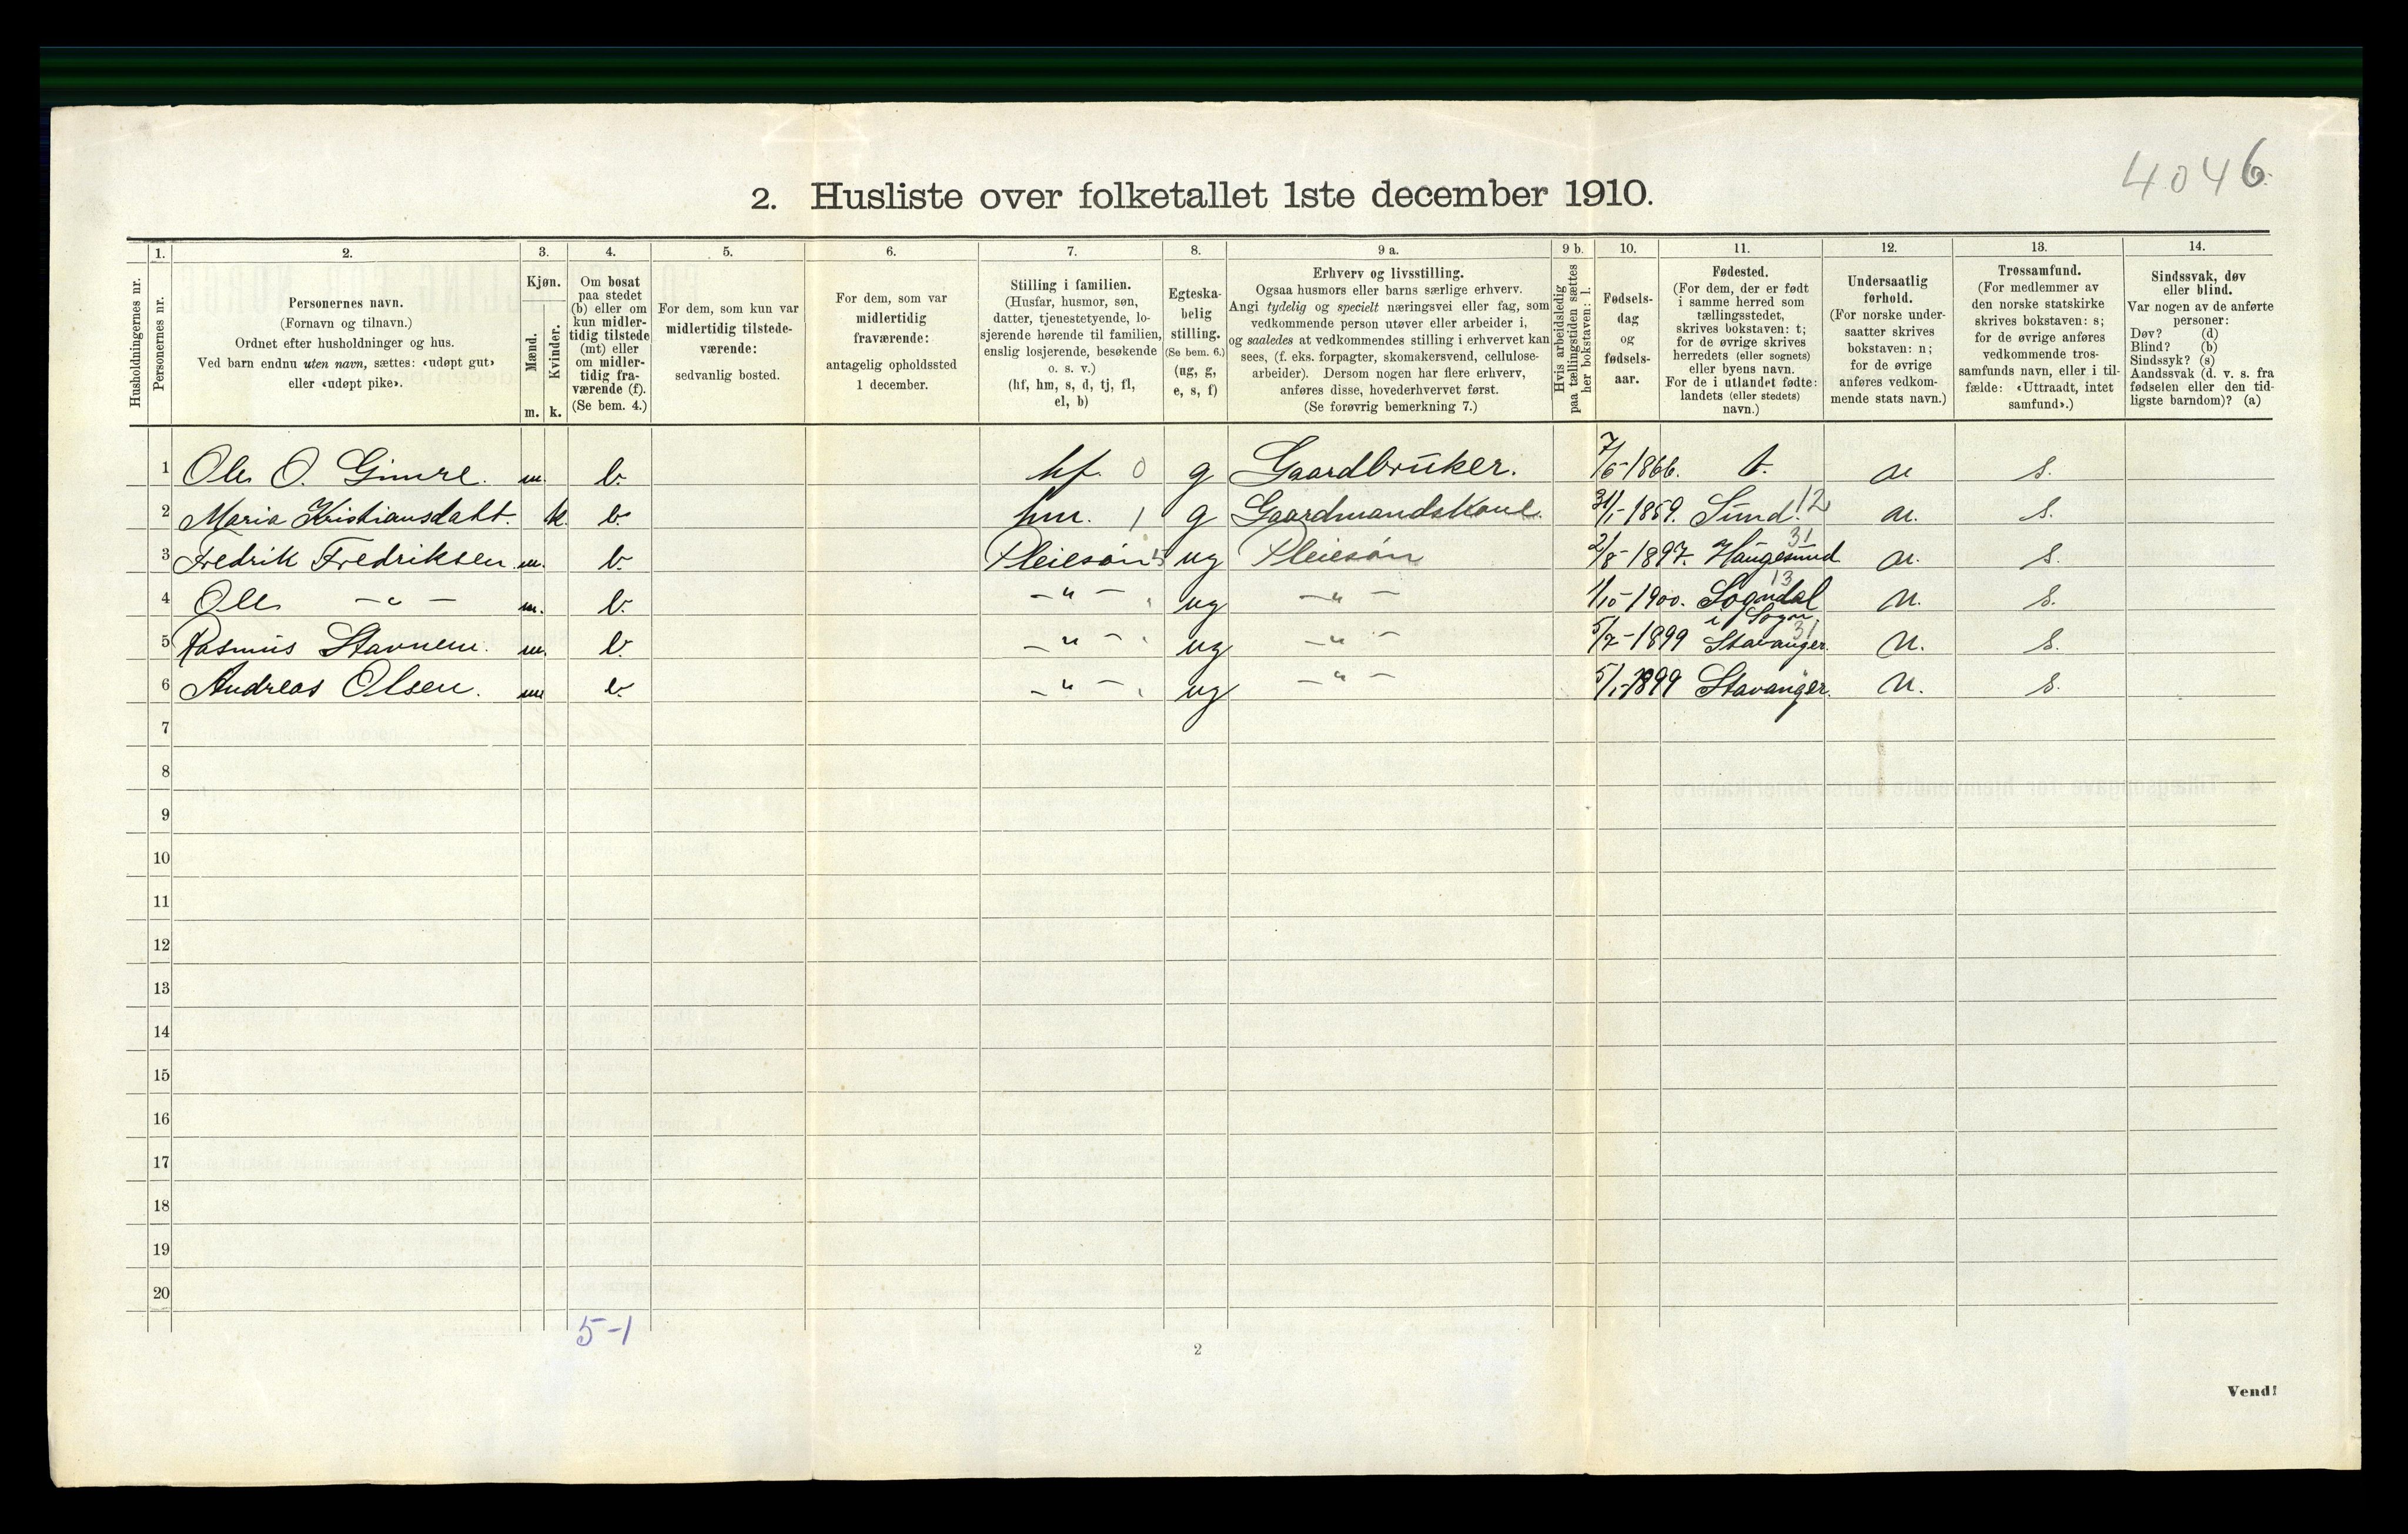 4046
2. Husliste over folketallet 1ste december 1910.
Husholdningernes nr.
1.
Personernes nr.
2.
Personernes navn.
(Fornavn og tilnavn.)
Ordnet efter husholdninger og hus.
Ved barn endnu uten navn, sættes: «udøpt gut»
eller «udøpt pike».
3.
Kjøn.
Mænd.
Kvinder.
m. k.
4.
Om bosat
paa stedet
(b) eller om
kun midler-
tidig tilstede
(mt) eller
om midler-
tidig fra-
værende (f).
(Se bem. 4.)
5.
For dem, som kun var
midlertidig tilstede-
værende:
sedvanlig bosted.
6.
For dem, som var
midlertidig
fraværende:
antagelig opholdssted
1 december.
7.
Stilling i familien.
(Husfar, husmor, søn,
datter, tjenestetyende, lo-
sjerende hørende til familien,
enslig losjerende, besøkende
o. s. v.)
(hf, hm, s, d, tj, fl,
el, b)
8.
Egteska-
belig
stilling.
(Se bem. 6.)
(ug, g,
e, s, f)
9 a.
Erhverv og livsstilling.
Ogsaa husmors eller barns særlige erhverv.
Angi tydelig og specielt næringsvei eller fag, som
vedkommende person utøver eller arbeider i,
og saaledes at vedkommendes stilling i erhvervet kan
sees, (f. eks. forpagter, skomakersvend, cellulose-
arbeider). Dersom nogen har flere erhverv,
anføres disse, hovederhvervet først.
(Se forøvrig bemerkning 7.)
9 b.
Hvis arbeidsledig
paa tællingstiden sættes
her bokstaven: l.
10.
Fødsels-
dag
og
fødsels-
aar.
11.
Fødested.
(For dem, der er født
i samme herred som
tællingsstedet,
skrives bokstaven: t;
for de øvrige skrives
herredets (eller sognets)
eller byens navn.
For de i utlandet fødte:
landets (eller stedets)
navn.)
12.
Undersaatlig
forhold.
(For norske under-
saatter skrives
bokstaven: n;
for de øvrige
anføres vedkom-
mende stats navn.)
13.
Trossamfund.
(For medlemmer av
den norske statskirke
skrives bokstaven: s;
for de øvrige anføres
vedkommende tros-
samfunds navn, eller i til-
fælde: «Uttraadt, intet
samfund».)
14.
Sindssvak, døv
eller blind.
Var nogen av de anførte
personer:
Døv? (d)
Blind? (b)
Sindssyk? (s)
Aandssvak (d. v. s. fra
fødselen eller den tid-
ligste barndom)? (a)
1 Ole O. Gimre. m. b. hf. 0 g Gaardbruker. 7/5-1866. t. n s.
2 Maria Kristiansdatt. k. b. hm. 1 g Gaardmandskone. 31/1-1859. Sund. 12 n. s.
3 Fredrik Fredriksen m. b. Pleiesøn 5 ug Pleiesøn 2/8-1897. Haugesund 31 n. s.
4 Ole -"- m. b. -"- ug -"- 1/10-1900. Sogndal i Sogn. 13 n. s.
5 Rasmus Stavnem. m. b. -"- ug -"- 5/7-1899 Stavanger. 31 n. s.
6 Andreas Olsen. m b. -"- ug -"- 5/1-1899 Stavanger. n. s.
7
8
9
10
11
12
13
14
15
16
17
18
19
20
5-1
2
Vend!